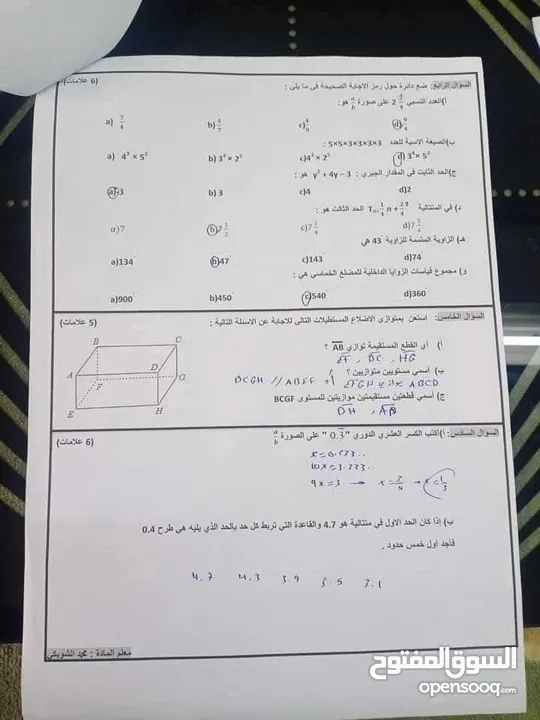 السؤال الرابع: ضع دائرة حول رمز الاجابة الصحيحة في ما يلي : (6 علامات)
أ)العدد النسبي 2 1/4 على صورة a/b هو:
a) 7/4 b) 4/7 c) 4/9 d) 9/4
ب)الصيغة الاسية للعدد 5×5×3×3×3×3 :
a) 4³ × 5² b) 3⁴ × 2⁵ c)4³ × 2⁵ d) 3⁴× 5²
ج)الحد الثابت في المقدار الجبري : y² + 4y – 3 هو :
a)-3 b) 3 c)4 d)2
د) في المتتالية الحد الثالث هو :
a)7 b)7 1/2 c)7 1/4 d)7 3/4
هـ) الزاوية المتممة للزاوية 43° هي
a)134° b)47° c)143° d)74°
و) مجموع قياسات الزوايا الداخلية للمضلع الخماسي هي :
a)900° b)450 c)540° d)360°
السؤال الخامس: استعن بمتوازي الاضلاع المستطيلات التالي للاجابة عن الاسئلة التالية : (5 علامات)
B
C
A
D
F
G
E
H
أ) أي القطع المستقيمة توازي AB ؟
EF , DC , HG
ب) أسمي مستويين متوازيين ؟
ABCD يوازي EFGH أو
ج) أسمي قطعتين مستقيمتين موازيتين للمستوى BCGF
DH , AD
السؤال السادس: أ)أكتب الكسر العشري الدوري "0.3̅ " على الصورة a/b (6 علامات)
x = 0.333..
10x = 3.333..
9x = 3 → x = 3/9 → x = 1/3
ب) إذا كان الحد الاول في متتالية هو 4.7 والقاعدة التي تربط كل حد بالحد الذي يليه هي طرح 0.4
فأجد أول خمس حدود .
4.7 4.3 3.9 3.5 3.1
معلم المادة : محمد الشوبكي
السوق المفتوح
opensooq.com